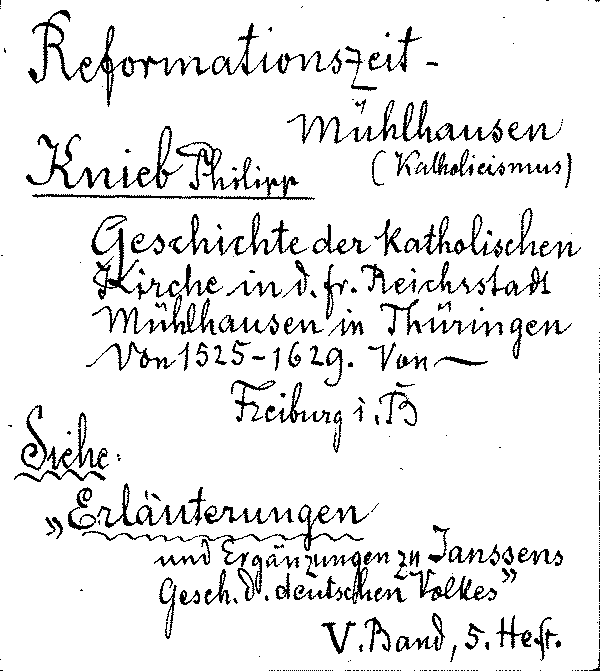 Reformationszeit -
Mühlhausen
(Katholicismus)
Knieb Philipp
Geschichte der katholischen
Kirche in d. fr. Reichsstadt
Mühlhausen in Thüringen
Von 1525-1629. Von —
Freiburg i. B̄
Siehe:
"Erläuterungen
und Ergänzungen zu Janssens
Gesch. d. deutschen Volkes"
V. Band, 5. Heft.